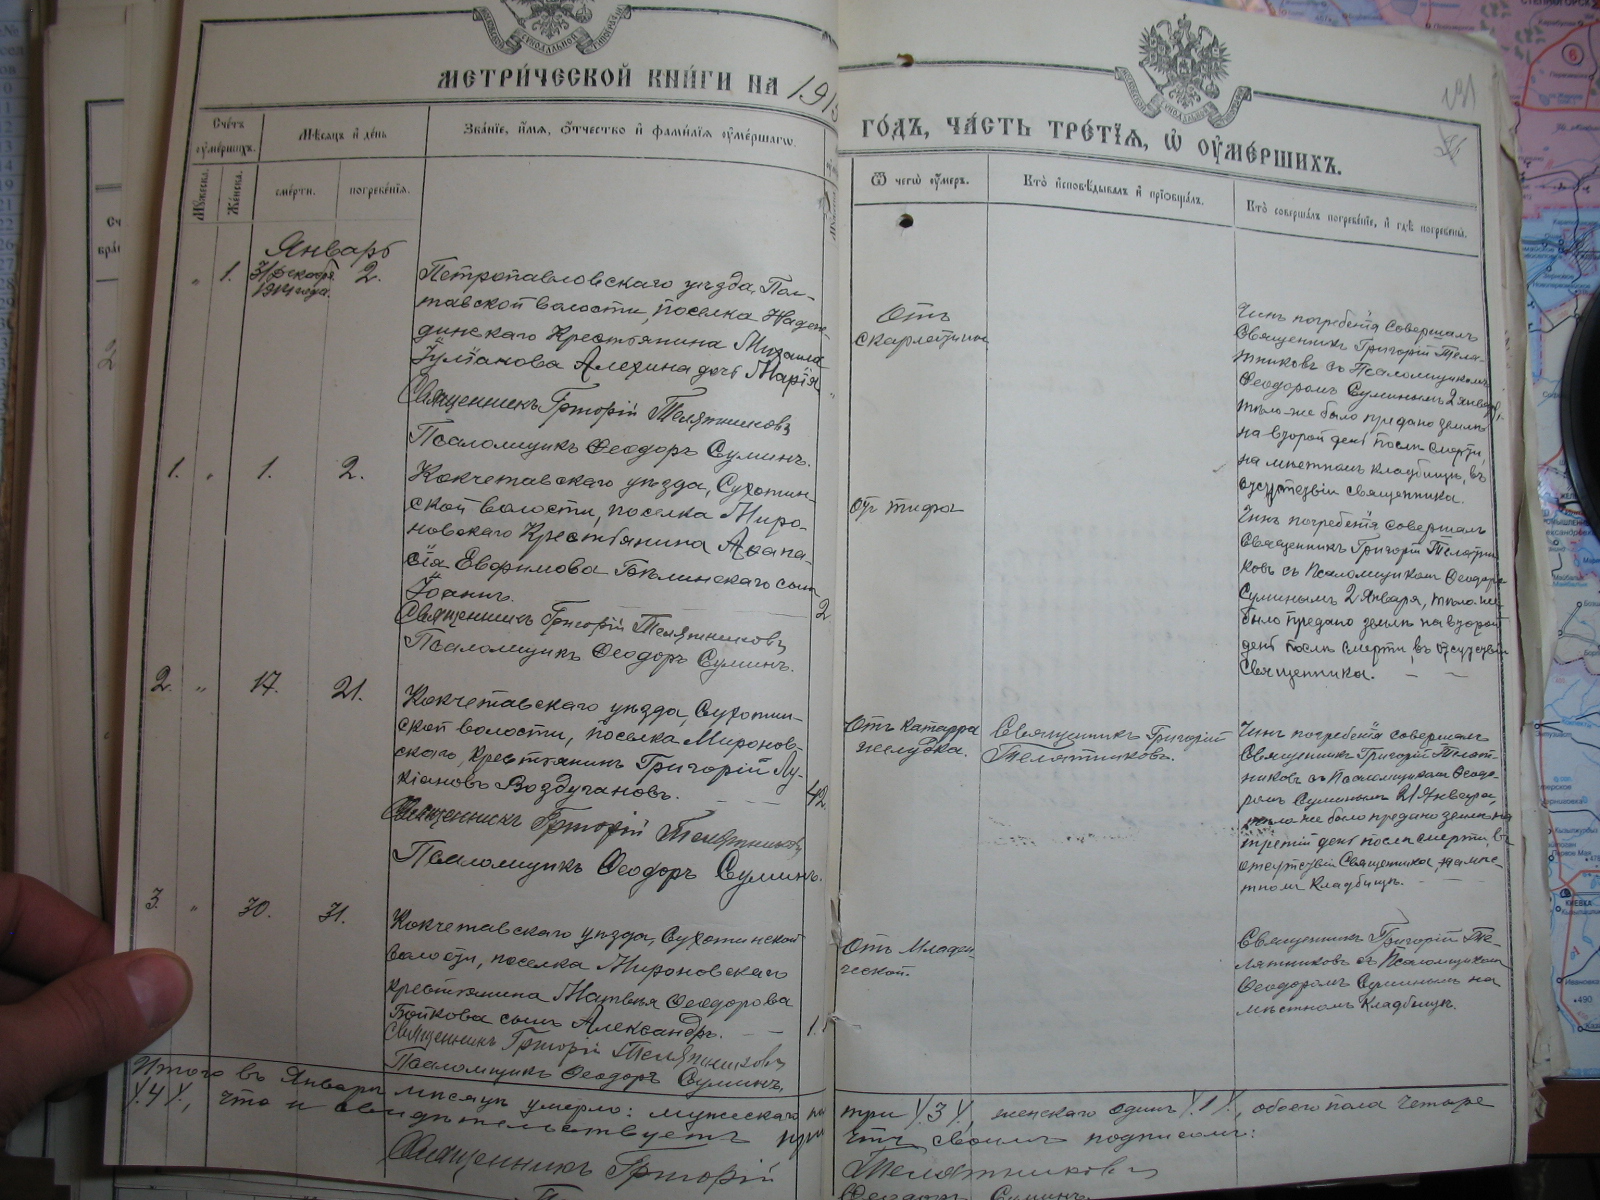 МЕТРИ́ЧЕСКОЙ КНИ́ГИ НА 1915
ГО́ДЪ, ЧА́СТЬ ТРЕ́ТЇѦ, Ѽ ОУ҆МЕ́РШИХЪ.
Сче́тъ оу҆ме́ршихъ.
Мꙋ́жеска.
Же́нска.
Мѣ́сѧцъ и҆ де́нь
сме́рти.
погребе́нїѧ.
Зва́нїе, и҆́мѧ, ѻ҆́тчество и҆ фами́лїѧ оу҆ме́ршагѡ.
Ѿ чегѡ̀ оу҆́меръ.
Кто̀ и҆сповѣ́дывалъ и҆ прїѡбща́лъ.
Кто̀ соверша́лъ погребе́нїе, и҆ гдѣ̀ погребены̀.
Январь
" 1. 31 декабря 1914 года. 2.
Петропавловскаго уѣзда, Пол-
тавской волости, поселка Надеж-
динскаго Крестьянина Михаила
Алехина дочь Марія
Священникъ Григорій Телятниковъ
Псаломщикъ Ѳеодоръ Суминъ.
Отъ
скарлатины
Чинъ погребенія совершалъ
Священникъ Григорій Телят-
никовъ съ Псаломщикомъ
Ѳеодоромъ Суминымъ 2 января,
тѣло-же было предано землѣ
на второй день послѣ смерти,
на мѣстномъ кладбищѣ, въ
отсутствіи священника.
1. " 1. 2.
Кокчетавскаго уѣзда, Сухотин-
ской волости, поселка Миро-
новскаго Крестьянина Аѳана-
сія Евфимова Бѣлинскаго сынъ
Іоаннъ.
2
Священникъ Григорій Телятниковъ
Псаломщикъ Ѳеодоръ Суминъ.
Отъ тифа
Чинъ погребенія совершалъ
Священникъ Григорій Телятни-
ковъ съ Псаломщикомъ Ѳеодоро
Суминымъ 2 Января, тѣло же
было предано землѣ на второй
день послѣ смерти, въ отсутствіи
Священника.
2. " 17. 21.
Кокчетавскаго уѣзда, Сухотин-
ской волости, поселка Миронов-
скаго, крестьянинъ Григорій Лу-
кіановъ Воздугановъ.
42
Священникъ Григорій Телятниковъ
Псаломщикъ Ѳеодоръ Суминъ.
Отъ катарра
желудка.
Священникъ Григорій
Телятниковъ.
Чинъ погребенія совершалъ
Священникъ Григорій Телят-
никовъ съ Псаломщикомъ Ѳеодо-
ромъ Суминымъ 21 Января,
тѣло же было предано землѣ на
третій день послѣ смерти, въ
отсутствіи Священника, на мѣс-
тномъ Кладбищѣ.
3. " 30. 31.
Кокчетавскаго уѣзда, Сухотинской
волости, поселка Мироновскаго
крестьянина Матвѣя Ѳеодорова
Бойкова сынъ Александръ.
1.
Священникъ Григорій Телятниковъ
Псаломщикъ Ѳеодоръ Суминъ.
Отъ младен-
ческой.
Священникъ Григорій Те-
лятниковъ съ Псаломщикомъ
Ѳеодоромъ Суминымъ на
мѣстномъ Кладбищѣ.
Итого въ Январѣ мѣсяцѣ умерло: мужескаго по три /.3./, женскаго одинъ /.1./, обоего пола четыре
/.4./, что и свидѣтельствуетъ своимъ подписомъ:
Священникъ Григорій Телятниковъ
Ѳеодоръ Суминъ
КИЕВКА